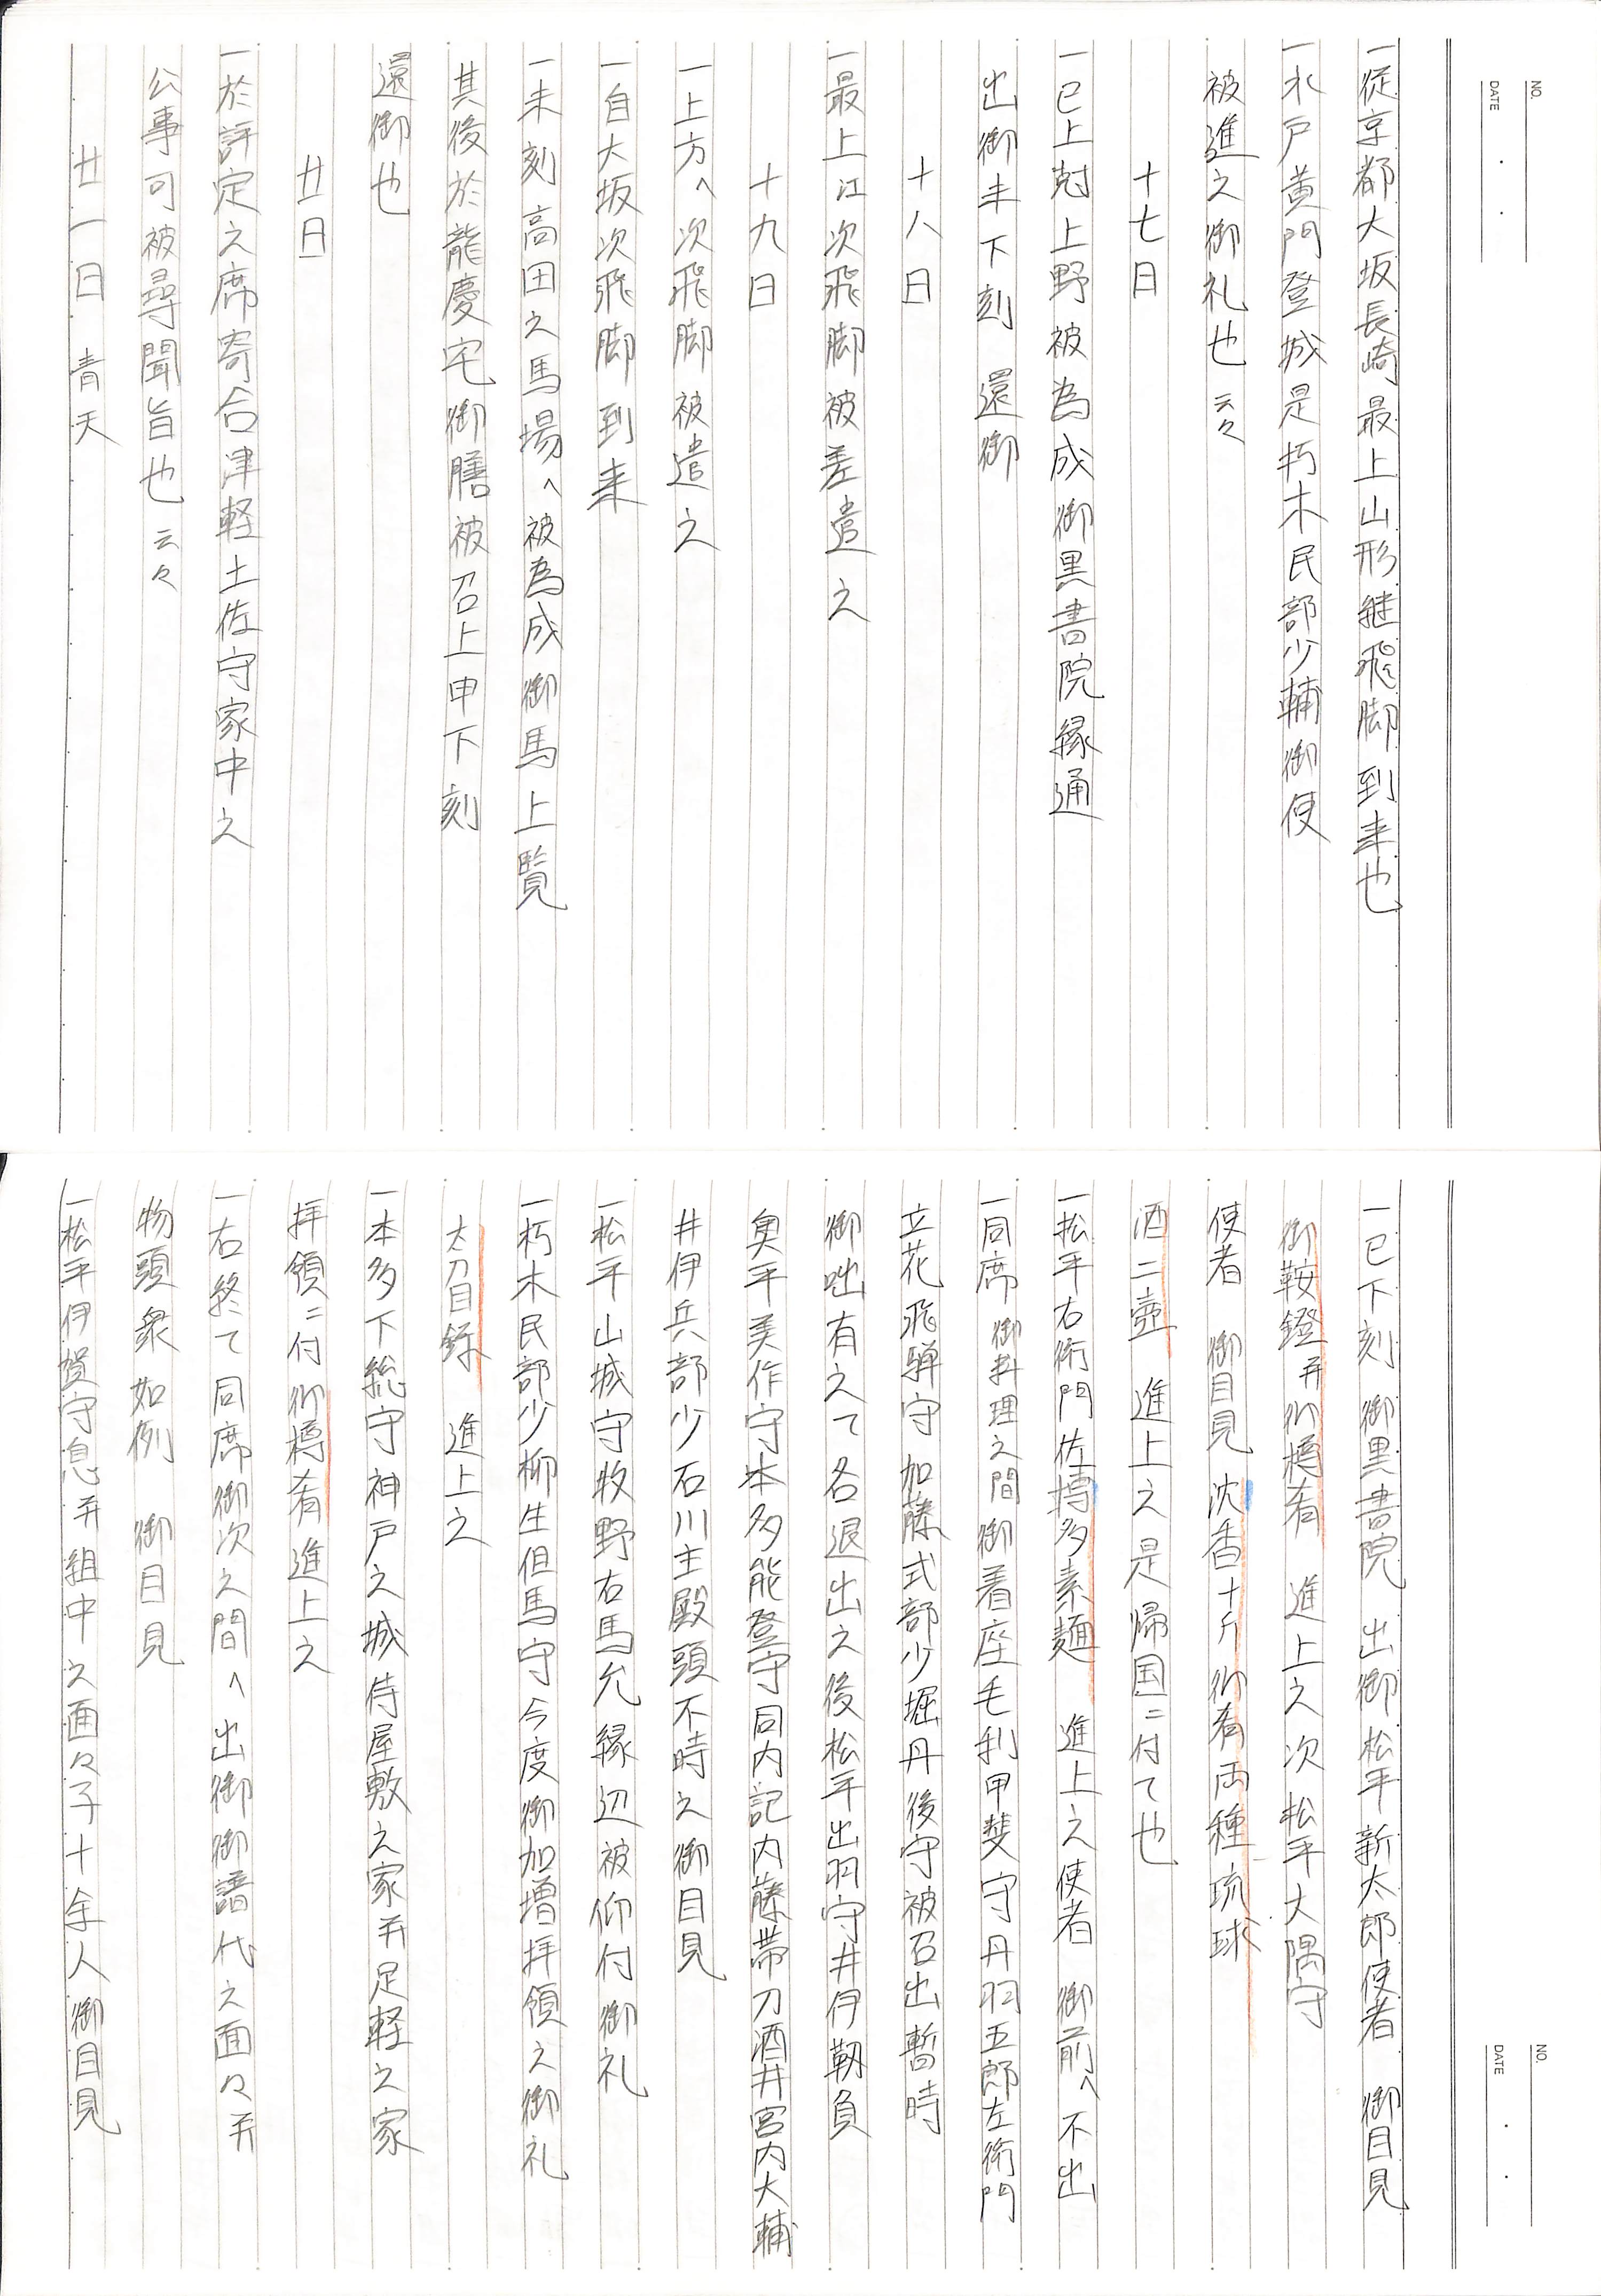 NO.
DATE
一従京都大坂長崎最上山形継飛脚到来也
一水戸黄門登城是朽木民部少輔御使
被進之御礼也云々
十七日
一巳上剋上野被為成御黒書院縁通
出御未下刻　還御
十八日
一最上江次飛脚被差遣之
十九日
一上方へ次飛脚被遣之
一自大坂次飛脚到来
一未刻高田之馬場へ被為成御馬上覧
其後於龍慶宅御膳被召上申下刻
還御也
廿日
一於評定之席寄合津軽土佐守家中之
公事可被尋聞旨也云々
廿一日　青天
NO.
DATE
一巳下刻　御黒書院　出御松平新太郎使者　御目見
御鞍鐙并御樽肴　進上之次松平大隅守
使者　御目見　沈香十斤　御肴両種琉球
酒二壺　進上之是帰国ニ付て也
一松平右衛門佐博多素麺　進上之使者　御前へ不出
一同席御料理之間御着座毛利甲斐守丹羽五郎左衛門
立花飛騨守加藤式部少堀丹後守被召出暫時
御咄有之て各退出之後松平出羽守井伊靱負
奥平美作守本多能登守同内記内藤帯刀酒井宮内大輔
井伊兵部少石川主殿頭不時之御目見
一松平山城守牧野右馬允縁辺被仰付御礼
一朽木民部少柳生但馬守今度御加増拝領之御礼
太刀目録　進上之
一本多下総守神戸之城侍屋敷之家并足軽之家
拝領ニ付御樽肴進上之
一右終て同席御次之間へ出御御譜代之面々并
物頭衆如例　御目見
一松平伊賀守息并組中之面々子十余人御目見